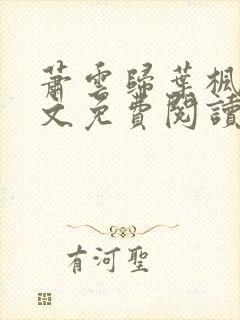 蕭雲歸葉楓
文免費閱讀
有河聖